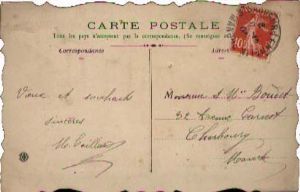 CARTE POSTALE
Tous les pays n'acceptent pas la correspondance. (Se renseigner
Correspondance
Adresse
Vœux et souhaits
sincères
Monsieur et Mme Boudet
32 Avenue Carnot
Cherbourg
Manche
10